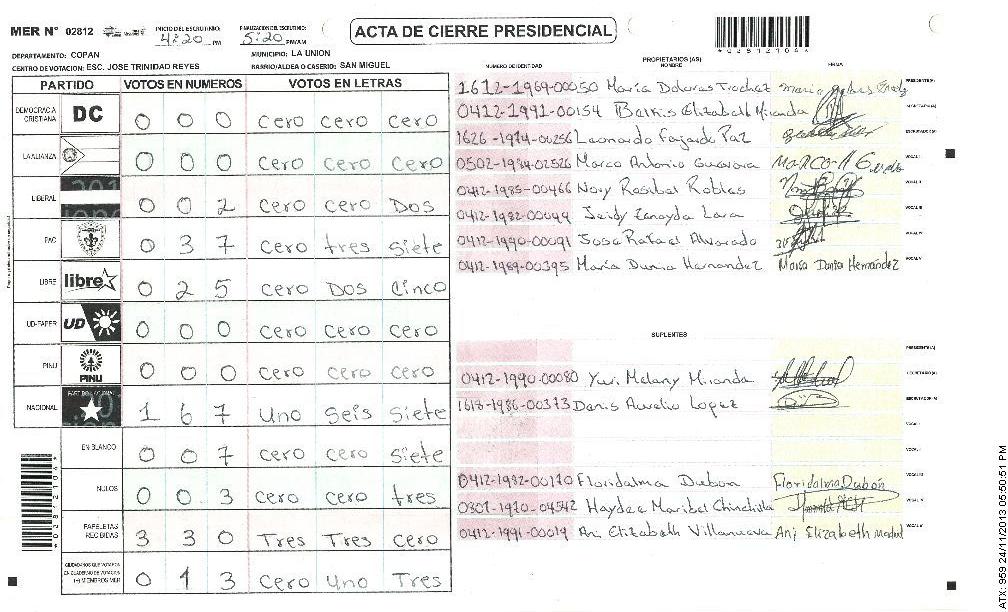 MER Nº 02812
INICIO DEL ESCRUTINIO: 4:20 PM
FINALIZACION DEL ESCRUTINIO: 5:20 PM/AM
ACTA DE CIERRE PRESIDENCIAL
DEPARTAMENTO: COPAN MUNICIPIO: LA UNION
CENTRO DE VOTACION: ESC. JOSE TRINIDAD REYES BARRIO/ALDEA O CASERIO: SAN MIGUEL
PARTIDO VOTOS EN NUMEROS VOTOS EN LETRAS
DEMOCRACIA CRISTIANA DC 0 0 0 cero cero cero
LA ALIANZA 0 0 0 cero cero cero
LIBERAL 0 0 2 cero cero Dos
PAC 0 3 7 cero tres siete
LIBRE libre 0 2 5 cero Dos Cinco
UD-FAPER UD 0 0 0 cero cero cero
PINU PINU 0 0 0 cero cero cero
NACIONAL 1 6 7 Uno Seis Siete
EN BLANCO 0 0 7 cero cero Siete
NULOS 0 0 3 cero cero tres
PAPELETAS RECIBIDAS 3 3 0 Tres Tres cero
CIUDADANOS QUE VOTARON EN CUADERNO DE VOTACION (+) MIEMBROS MER 0 1 3 Cero uno Tres
PROPIETARIOS (AS)
NUMERO DE IDENTIDAD NOMBRE FIRMA
1612-1969-00050 María Dolores PRESIDENTE(A)
0412-1991-00154 Elizabeth Miranda SECRETARIO(A)
1626-1974-00256 Leonardo Fajardo Paz ESCRUTADOR(A)
0502-1984-02526 Marco Antonio VOCAL I
0412-1985-00466 Robles VOCAL II
Lara VOCAL III
0412-1990-00091 Jose Rafael Alvarado VOCAL IV
0412-1989-00395 María Dunia Hernandez VOCAL V
SUPLENTES
PRESIDENTE(A)
0412-1990-00080 Yuri Melany Miranda SECRETARIO(A)
1618-1986-00373 Denis Aurelio Lopez ESCRUTADOR(A)
VOCAL I
VOCAL II
0412-1982-00170 Floridalma Dubon Floridalma Dubón VOCAL III
Haydee Maribel Chinchilla VOCAL IV
0412-1991-00019 Ani Elizabeth Villanueva Ani Elizabeth VOCAL V
ATX: 959 24/11/2013 05:50:51 PM